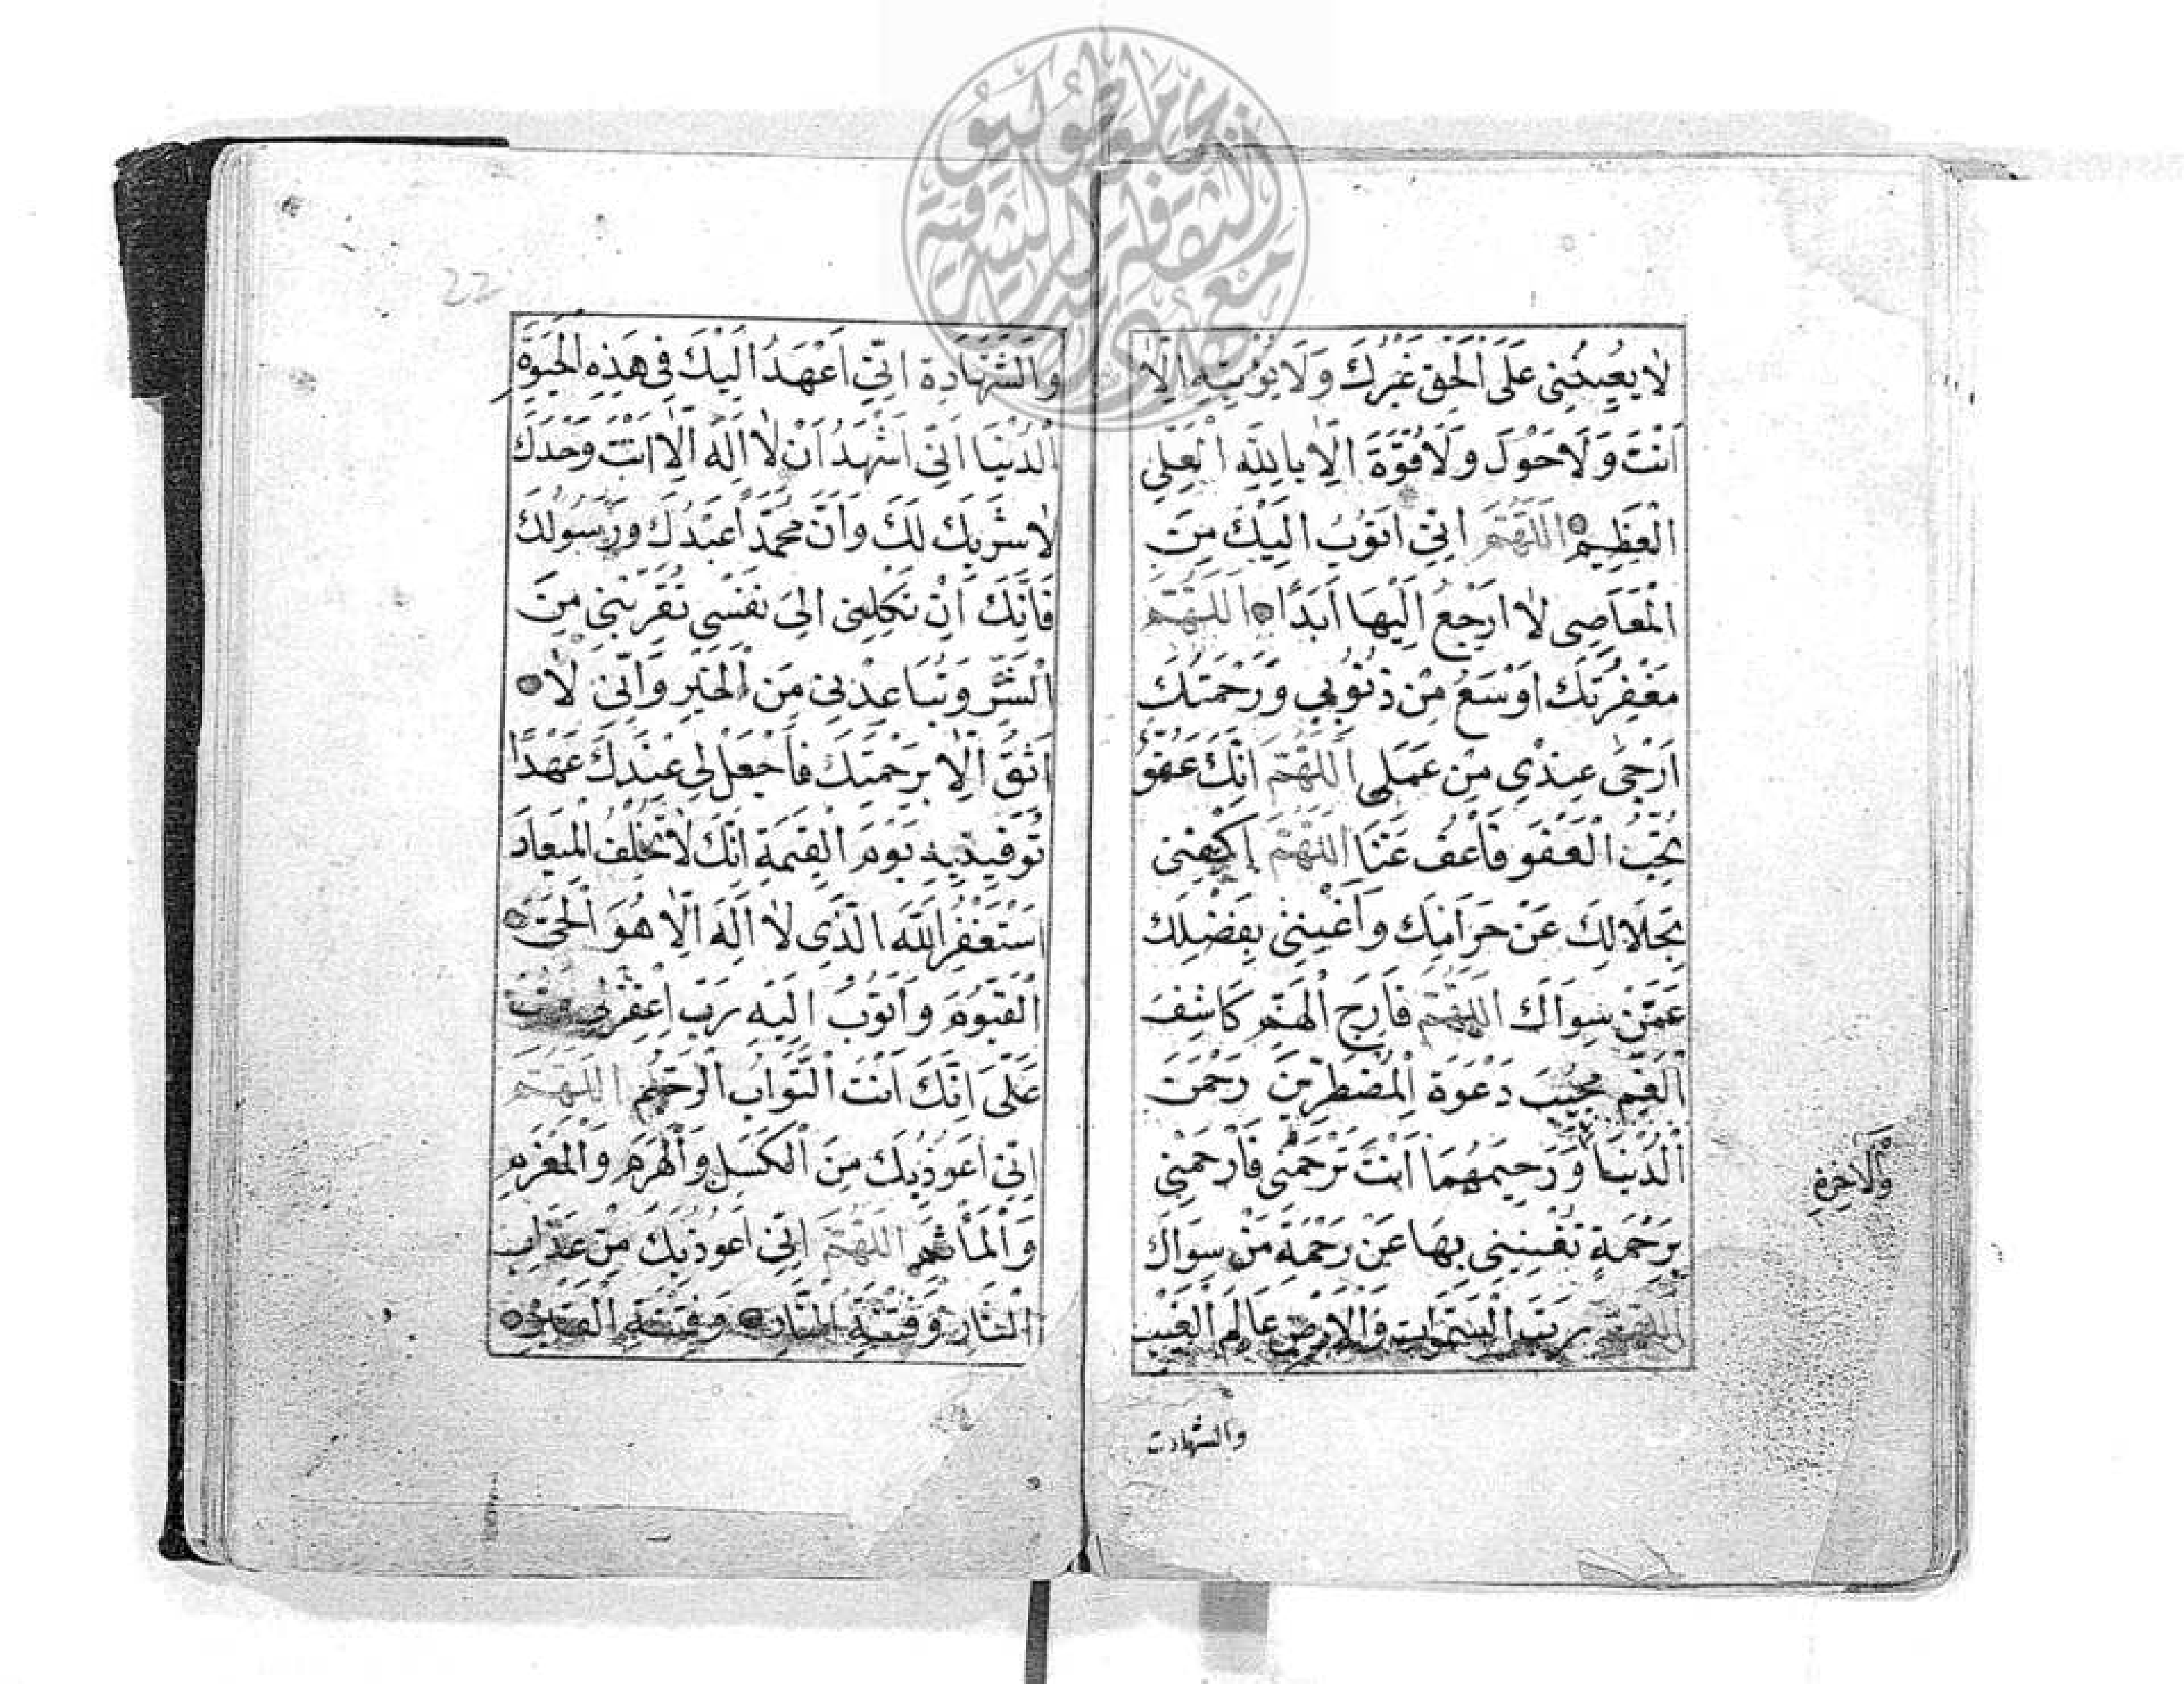 لَا يُعِينُنِي عَلَى الْحَقِّ غَيْرُكَ وَلَا يُؤْتِيهِ إِلَّا
أَنْتَ وَلَا حَوْلَ وَلَا قُوَّةَ إِلَّا بِاللَّهِ الْعَلِيِّ
الْعَظِيمِ اللَّهُمَّ إِنِّي أَتُوبُ إِلَيْكَ مِنَ
الْمَعَاصِي لَا أَرْجِعُ إِلَيْهَا أَبَدًا اللَّهُمَّ
مَغْفِرَتُكَ أَوْسَعُ مِنْ ذُنُوبِي وَرَحْمَتُكَ
أَرْجَى عِنْدِي مِنْ عَمَلِي اللَّهُمَّ إِنَّكَ عَفُوٌّ
تُحِبُّ الْعَفْوَ فَاعْفُ عَنَّا اللَّهُمَّ اكْفِنِي
بِحَلَالِكَ عَنْ حَرَامِكَ وَأَغْنِنِي بِفَضْلِكَ
عَمَّنْ سِوَاكَ اللَّهُمَّ فَارِجَ الْهَمِّ كَاشِفَ
الْغَمِّ مُجِيبَ دَعْوَةِ الْمُضْطَرِّينَ رَحْمَنَ
الدُّنْيَا وَرَحِيمَهُمَا أَنْتَ تَرْحَمُنِي فَارْحَمْنِي
بِرَحْمَةٍ تُغْنِينِي بِهَا عَنْ رَحْمَةِ مَنْ سِوَاكَ
اللَّهُمَّ رَبَّ السَّمَوَاتِ وَالْأَرْضِ عَالِمَ الْغَيْبِ
وَالْآخِرَةِ
والشهادت
22
وَالشَّهَادَةِ إِنِّي أَعْهَدُ إِلَيْكَ فِي هَذِهِ الْحَيَوةِ
الدُّنْيَا أَنِّي أَشْهَدُ أَنْ لَا إِلَهَ إِلَّا أَنْتَ وَحْدَكَ
لَا شَرِيكَ لَكَ وَأَنَّ مُحَمَّدًا عَبْدُكَ وَرَسُولُكَ
فَإِنَّكَ إِنْ تَكِلْنِي إِلَى نَفْسِي تُقَرِّبْنِي مِنَ
الشَّرِّ وَتُبَاعِدْنِي مِنَ الْخَيْرِ وَإِنِّي لَا
أَثِقُ إِلَّا بِرَحْمَتِكَ فَاجْعَلْ لِي عِنْدَكَ عَهْدًا
تُوَفِّيَنِيهِ يَوْمَ الْقِيَمَةِ إِنَّكَ لَا تُخْلِفُ الْمِيعَادَ
أَسْتَغْفِرُ اللَّهَ الَّذِي لَا إِلَهَ إِلَّا هُوَ الْحَيَّ
الْقَيُّومَ وَأَتُوبُ إِلَيْهِ رَبِّ اغْفِرْ لِي وَتُبْ
عَلَيَّ إِنَّكَ أَنْتَ التَّوَّابُ الرَّحِيمُ اللَّهُمَّ
إِنِّي أَعُوذُ بِكَ مِنَ الْكَسَلِ وَالْهَرَمِ وَالْمَغْرَمِ
وَالْمَأْثَمِ اللَّهُمَّ إِنِّي أَعُوذُ بِكَ مِنْ عَذَابِ
النَّارِ وَفِتْنَةِ النَّارِ وَفِتْنَةِ الْقَبْرِ